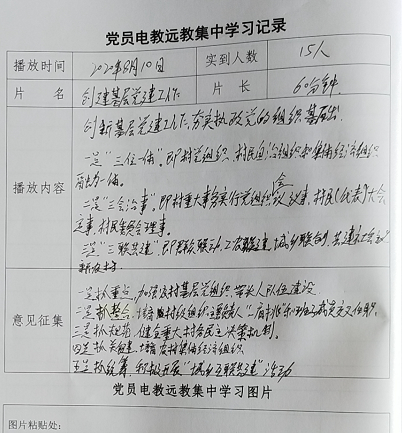 党员电教远教集中学习记录
播放时间 2020年8月10日 实到人数 15人
片名 创建基层党建工作 片长 60分钟
播放内容
创新基层党建工作,夯实执政党的组织基础
一是“三位一体”。即村党组织、村民自治组织和集体经济组织
融为一体。
二是“三会治事”。即村重大事务实行党组织会议议事,村民(代表)大会
定事,村民委员会理事。
三是“三联共建”即群众联动,工农联建,城乡联合,共建社会主义
新农村
意见征集
一是抓重点,加强农村基层党组织带头人队伍建设
二是抓整合,
三是抓规范,健全重大村务民主决策机制。
四是抓关键,培育农村集体经济组织
五是抓统筹,积极开展“城乡互联共建”活动
党员电教远教集中学习图片
图片粘贴处: